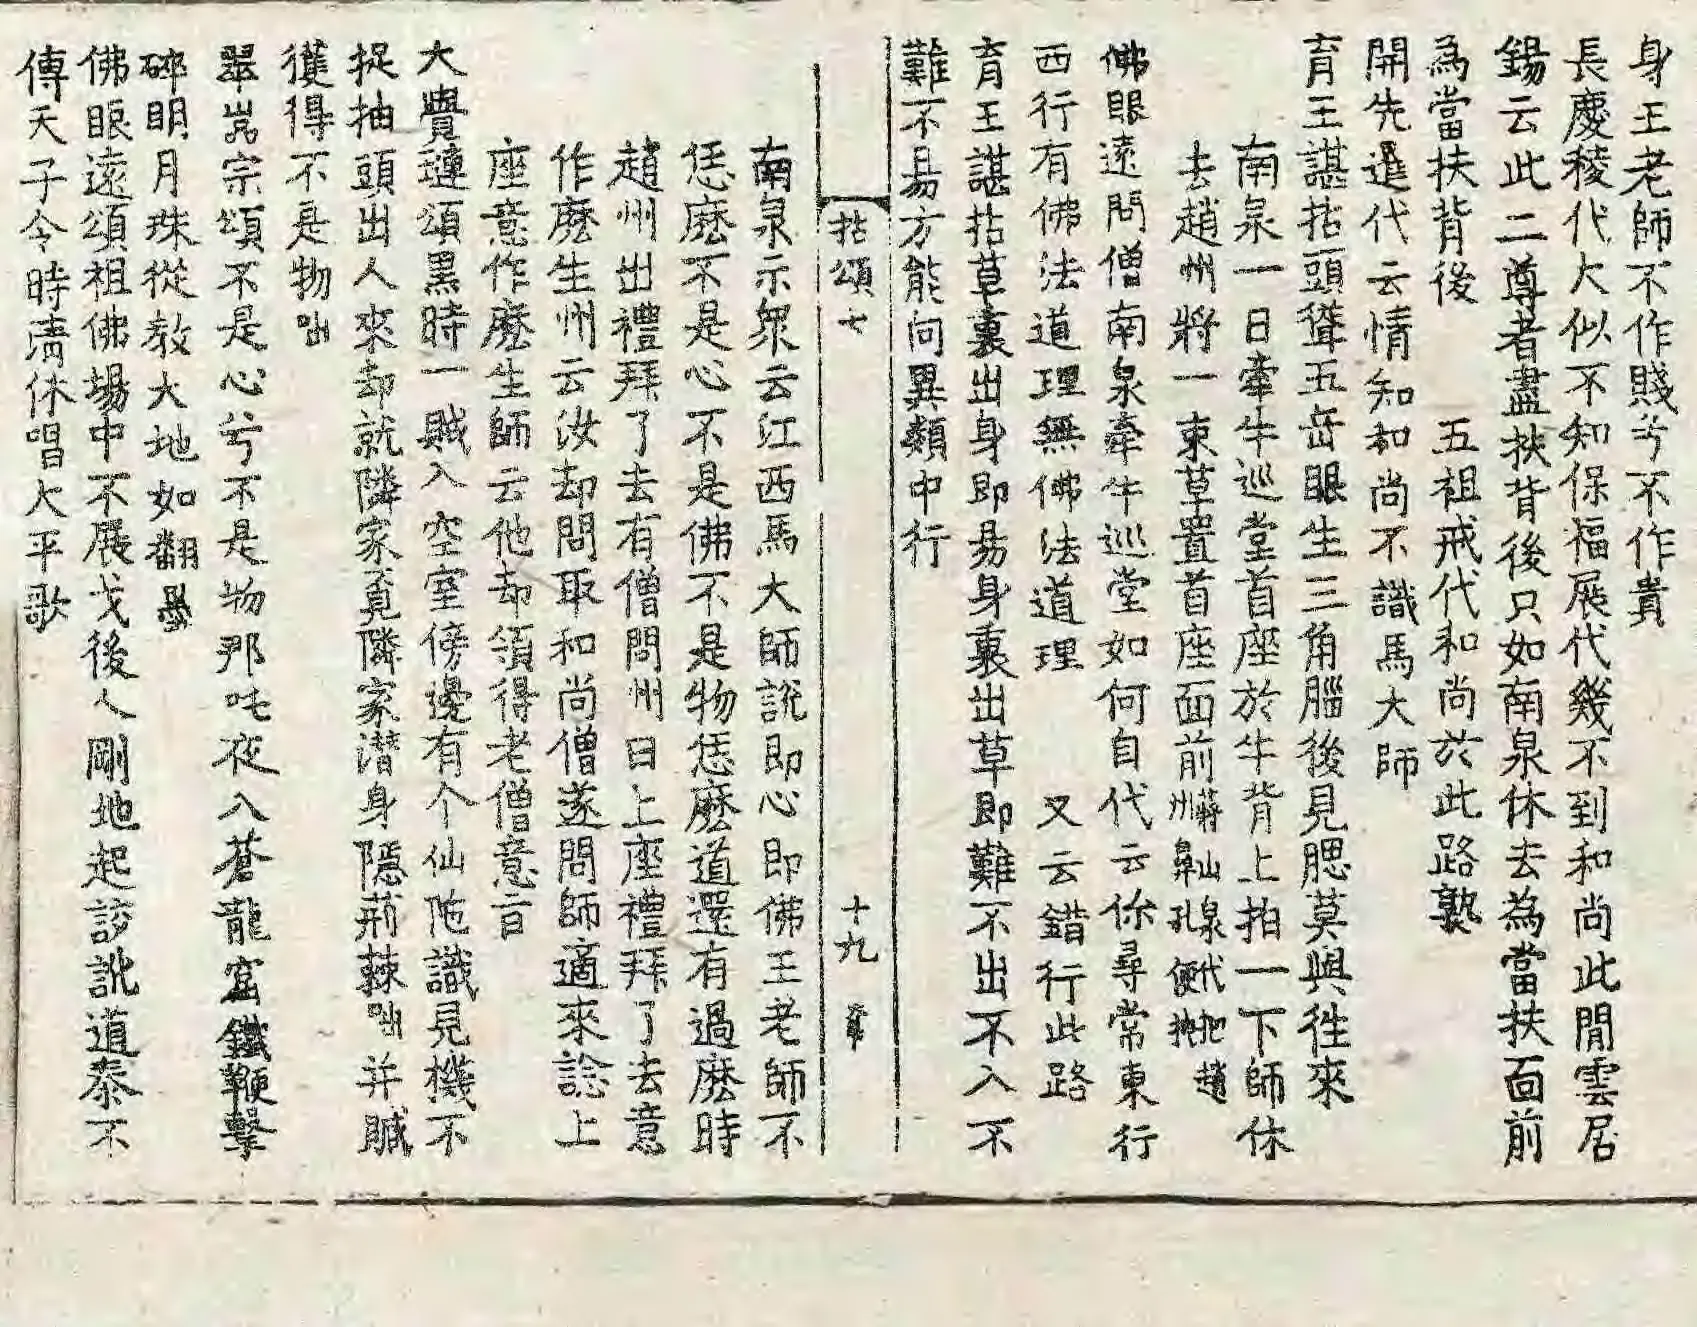 身王老師不作賤兮不作貴
長慶稜代大似不知保福展代幾不到和尚此間雲居
錫云此二尊者盡扶背後只如南泉休去為當扶面前
為當扶背後　五祖戒代和尚於此路熟
開先暹代云情知和尚不識馬大師
育王諶拈頭聳五岳眼生三角腦後見腮莫與往來
南泉一日牽牛巡堂首座於牛背上拍一下師休
去趙州將一束草置首座面前蔣山泉代把趙州鼻孔便拽
佛眼遠問僧南泉牽牛巡堂如何自代云你尋常東行
西行有佛法道理無佛法道理　又云錯行此路
育王諶拈草裏出身即易身裏出草即難不出不入不
難不易方能向異類中行
拈頌七　十九
南泉示眾云江西馬大師說即心即佛王老師不
恁麼不是心不是佛不是物恁麼道還有過麼時
趙州出禮拜了去有僧問州曰上座禮拜了去意
作麼生州云汝却問取和尚僧遂問師適來諗上
座意作麼生師云他却領得老僧意旨
大覺璉頌黑時一賊入空室傍邊有个仙陁識見機不
捉抽頭出人來却就隣家覓隣家潛身隱荊棘咄并贓
獲得不是物咄
翠嵓宗頌不是心兮不是物那吒夜入蒼龍窟鐵鞭擊
碎明月珠從教大地如翻墨
佛眼遠頌祖佛場中不展戈後人剛地起誵訛道泰不
傳天子令時清休唱大平歌